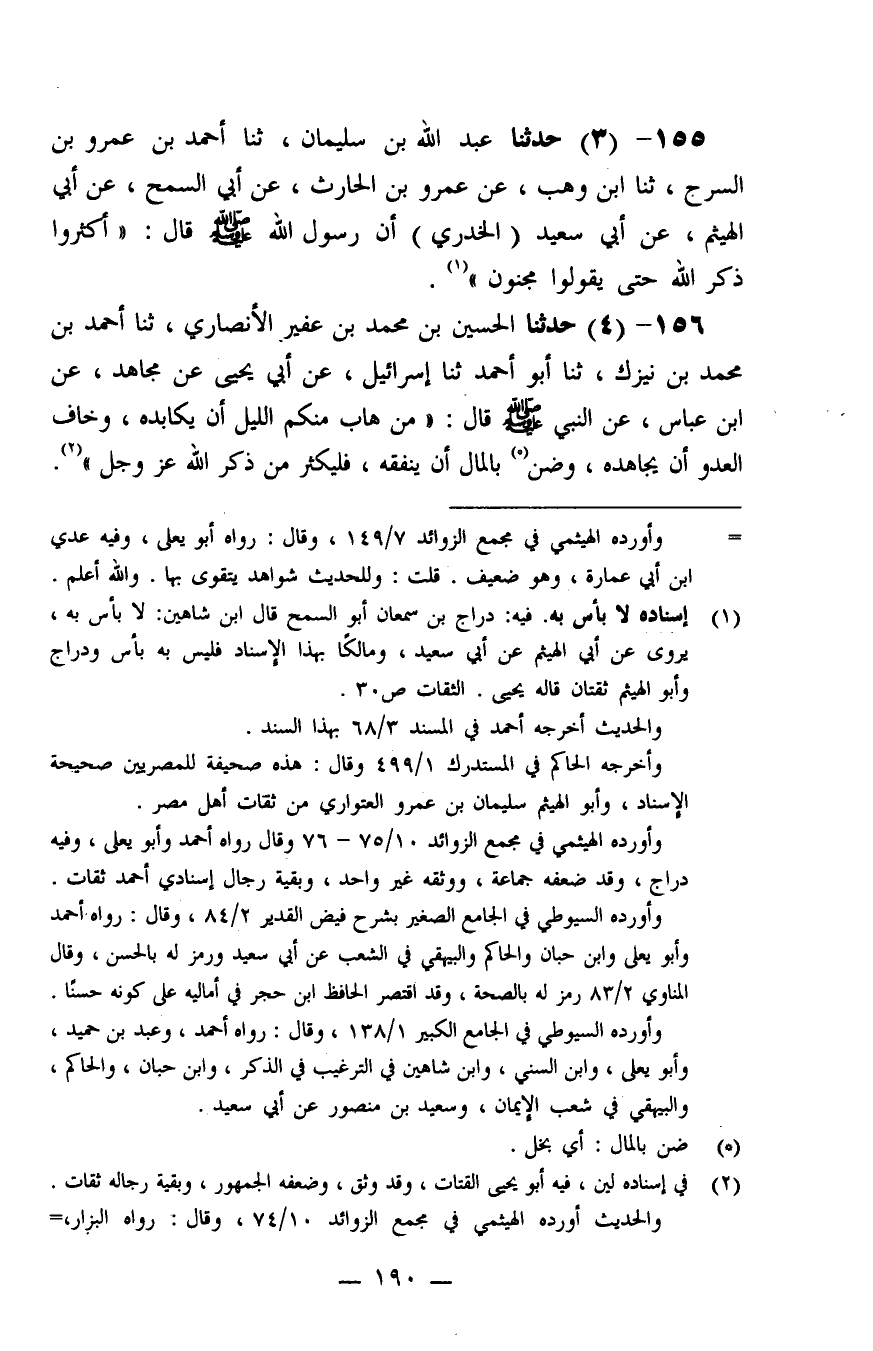 ١٥٥- (٣) حدثنا عبد الله بن سليمان ، ثنا أحمد بن عمرو بن
السرج ، ثنا ابن وهب ، عن عمرو بن الحارث ، عن أبي السمح ، عن أبي
الهيثم ، عن أبي سعيد ( الخدري ) أن رسول الله ﷺ قال : « أكثروا
ذكر الله حتى يقولوا مجنون »(١) .
١٥٦- (٤) حدثنا الحسين بن محمد بن عفير الأنصاري ، ثنا أحمد بن
محمد بن نيزك ، ثنا أبو أحمد ثنا إسرائيل ، عن أبي يحيى عن مجاهد ، عن
ابن عباس ، عن النبي ﷺ قال : « من هاب منكم الليل أن يكابده ، وخاف
العدو أن يجاهده ، وضن(٥) بالمال أن ينفقه ، فليكثر من ذكر الله عز وجل »(٢).
= وأورده الهيثمي في مجمع الزوائد ١٤٩/٧ ، وقال : رواه أبو يعلى ، وفيه عدي
ابن أبي عمارة ، وهو ضعيف . قلت : وللحديث شواهد يتقوى بها . والله أعلم .
(١) إسناده لا بأس به. فيه: دراج بن سمعان أبو السمح قال ابن شاهين: لا بأس به ،
يروى عن أبي الهيثم عن أبي سعيد ، ومالكًا بهذا الإسناد فليس به بأس ودراج
وأبو الهيثم ثقتان قاله يحيى . الثقات ص٣٠ .
والحديث أخرجه أحمد في المسند ٦٨/٣ بهذا السند .
وأخرجه الحاكم في المستدرك ٤٩٩/١ وقال : هذه صحيفة للمصريين صحيحة
الإسناد ، وأبو الهيثم سليمان بن عمرو العتواري من ثقات أهل مصر .
وأورده الهيثمي في مجمع الزوائد ٧٥/١٠ – ٧٦ وقال رواه أحمد وأبو يعلى ، وفيه
دراج ، وقد ضعفه جماعة ، ووثقه غير واحد ، وبقية رجال إسنادي أحمد ثقات .
وأورده السيوطي في الجامع الصغير بشرح فيض القدير ٨٤/٢ ، وقال : رواه أحمد
وأبو يعلى وابن حبان والحاكم والبيهقي في الشعب عن أبي سعيد ورمز له بالحسن ، وقال
المناوي ٨٣/٢ رمز له بالصحة ، وقد اقتصر الحافظ ابن حجر في أماليه على كونه حسنًا .
وأورده السيوطي في الجامع الكبير ١٣٨/١ ، وقال : رواه أحمد ، وعبد بن حميد ،
وأبو يعلى ، وابن السني ، وابن شاهين في الترغيب في الذكر ، وابن حبان ، والحاكم ،
والبيهقي في شعب الإيمان ، وسعيد بن منصور عن أبي سعيد .
(٥) ضن بالمال : أي بخل .
(٢) في إسناده لين ، فيه أبو يحيى القتات ، وقد وثق ، وضعفه الجمهور ، وبقية رجاله ثقات .
والحديث أورده الهيثمي في مجمع الزوائد ٧٤/١٠ ، وقال : رواه البزار،=
— ١٩٠ —